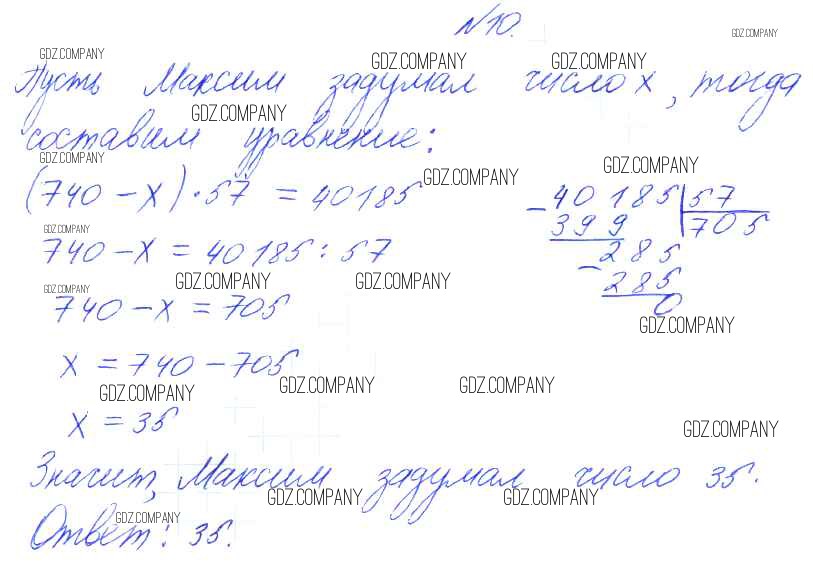 №10.
GDZ.COMPANY
GDZ.COMPANY
GDZ.COMPANY GDZ.COMPANY
Пусть Максим задумал число x, тогда
GDZ.COMPANY
составим уравнение:
GDZ.COMPANY
GDZ.COMPANY
GDZ.COMPANY
(740 - x) · 57 = 40185
- 40185 | 57
399 705
GDZ.COMPANY
740 - x = 40185 : 57
- 285
285
0
GDZ.COMPANY GDZ.COMPANY
GDZ.COMPANY
740 - x = 705
GDZ.COMPANY
x = 740 - 705
GDZ.COMPANY GDZ.COMPANY GDZ.COMPANY
x = 35
GDZ.COMPANY
Значит, Максим задумал число 35.
GDZ.COMPANY GDZ.COMPANY
GDZ.COMPANY
Ответ: 35.